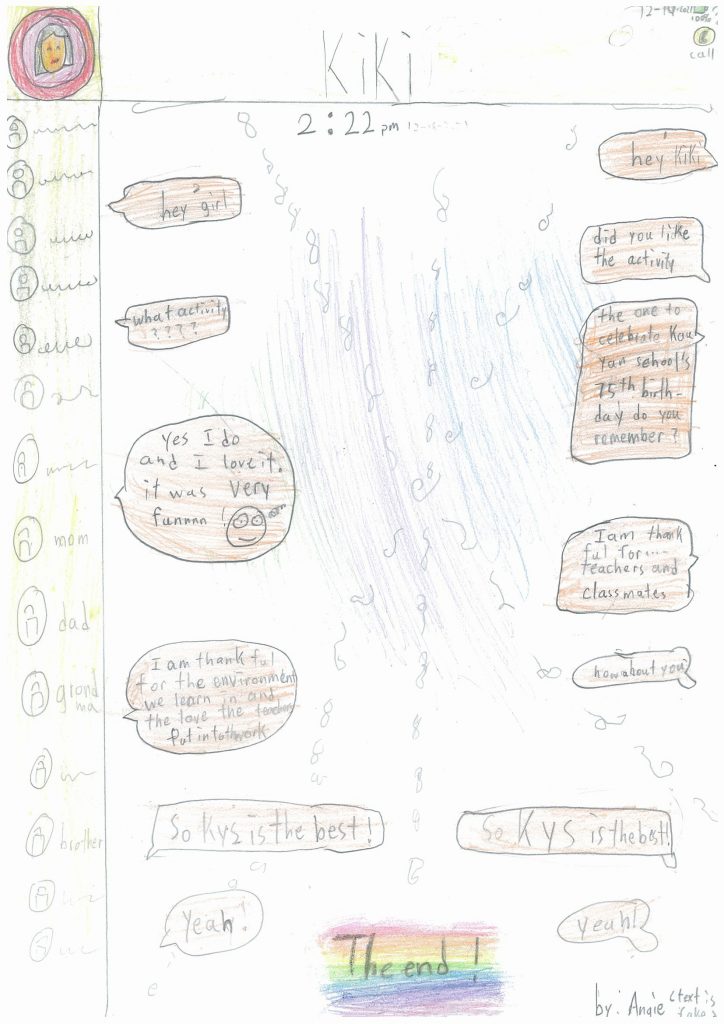 100%
call
KiKi
2:22 pm
hey KiKi
hey girl
did you like
the activity
what activity
????
the one to
celebrate Kau
Yan school's
75th birth-
day do you
remember?
yes I do
and I love it.
it was very
funnnn!
I am thank
ful for....
teachers and
classmates
how about you
I am thank ful
for the environment
we learn in and
the love the teachers
Put into
So Kys is the best!
So KYS is the best!
yeah!
yeah!
mom
dad
grand
ma
brother
The end!
by: Angie (text is